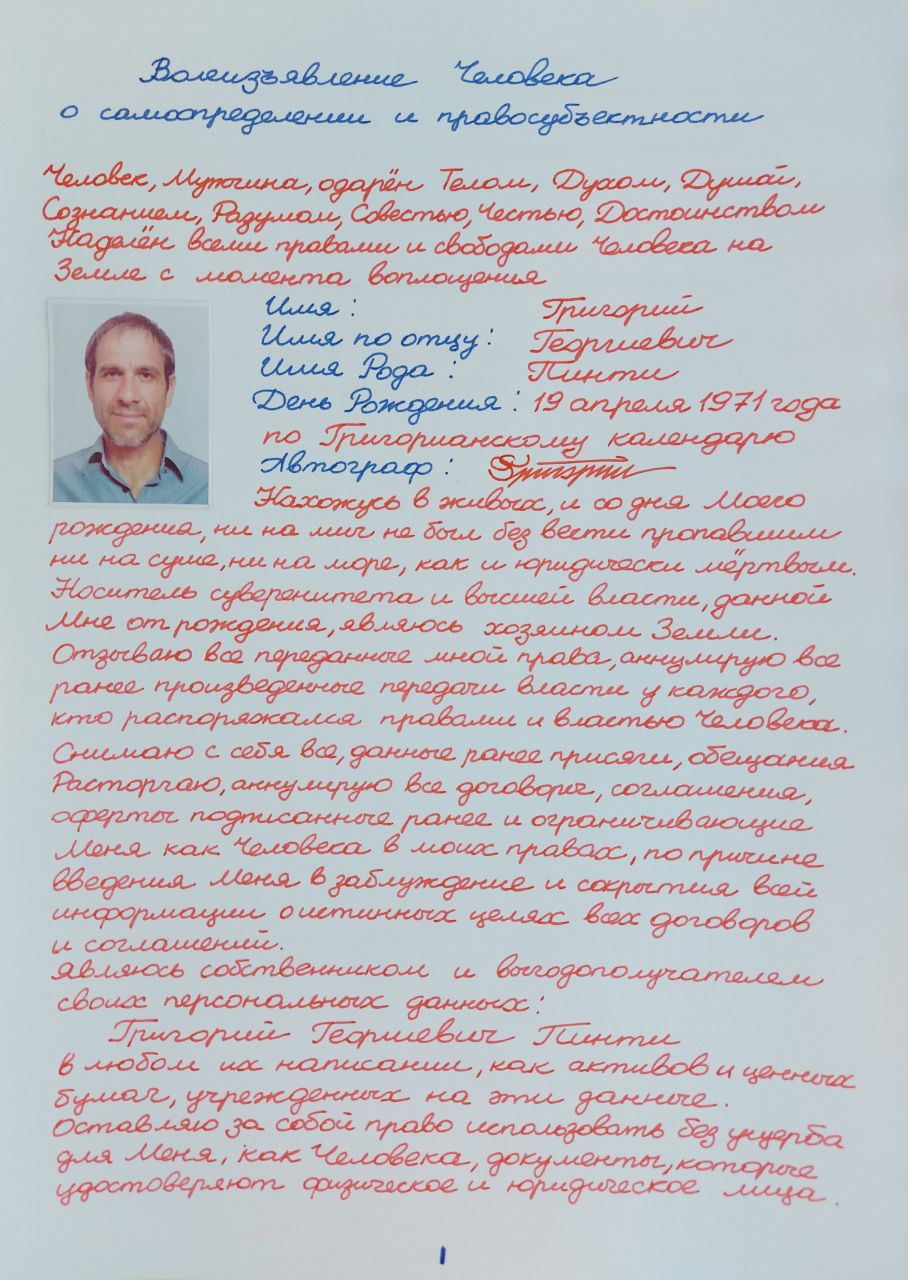 Волеизъявление Человека
о самоопределении и правосубъектности
Человек, Мужчина, одарён Телом, Духом, Душой,
Сознанием, Разумом, Совестью, Честью, Достоинством
Наделён всеми правами и свободами Человека на
Земле с момента воплощения
Имя: Григорий
Имя по отцу: Георгиевич
Имя Рода: Пинти
День Рождения: 19 апреля 1971 года
по Григорианскому календарю
Автограф: Григорий
Нахожусь в живых, и со дня Моего
рождения, ни на миг не был без вести пропавшим
ни на суше, ни на море, как и юридически мёртвым.
Носитель суверенитета и высшей власти, данной
Мне от рождения, являюсь хозяином Земли.
Отзываю все переданные мной права, аннулирую все
ранее произведенные передачи власти у каждого,
кто распоряжался правами и властью Человека.
Снимаю с себя все, данные ранее присяги, обещания
Расторгаю, аннулирую все договоры, соглашения,
оферты подписанные ранее и ограничивающие
Меня как Человека в моих правах, по причине
введения Меня в заблуждение и сокрытия всей
информации о истинных целях всех договоров
и соглашений.
являюсь собственником и выгодополучателем
своих персональных данных:
Григорий Георгиевич Пинти
в любом их написании, как активов и ценных
бумаг, учрежденных на эти данные.
Оставляю за собой право использовать без ущерба
для Меня, как Человека, документы, которые
удостоверяют физическое и юридическое лица.
1